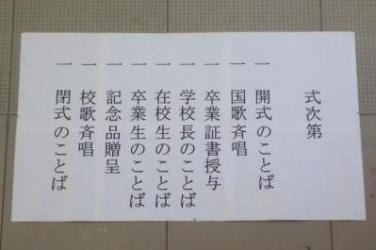 式次第
一 開式のことば
一 国歌斉唱
一 卒業証書授与
一 学校長のことば
一 在校生のことば
一 卒業生のことば
一 記念品贈呈
一 校歌斉唱
一 閉式のことば